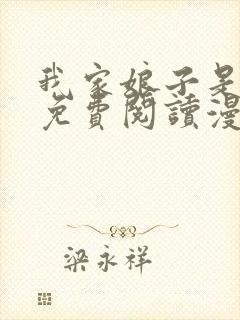 我家娘子是
免費閱讀漫
梁永祥